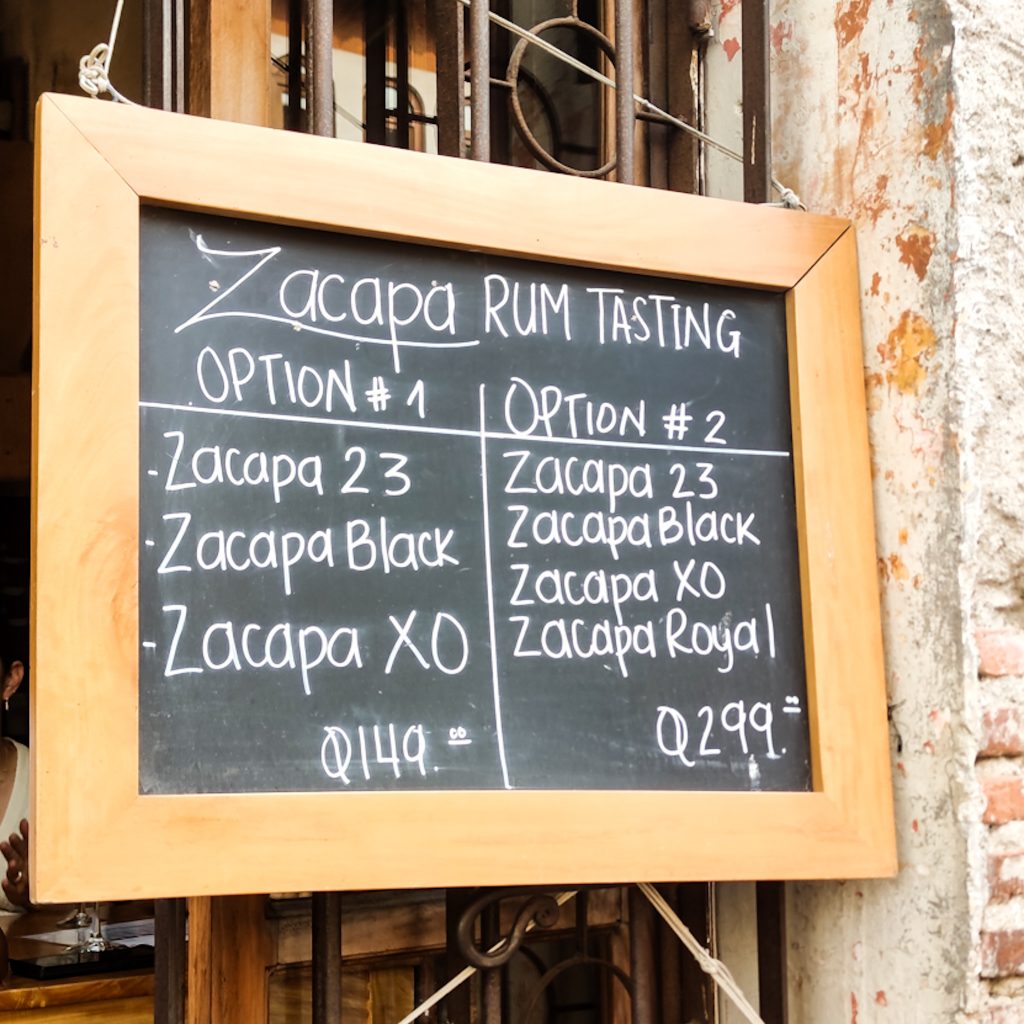 Zacapa RUM TASTING
OPTION # 1
- Zacapa 23
- Zacapa Black
- Zacapa XO
Q149.00
OPTION # 2
Zacapa 23
Zacapa Black
Zacapa XO
Zacapa Royal
Q299.00